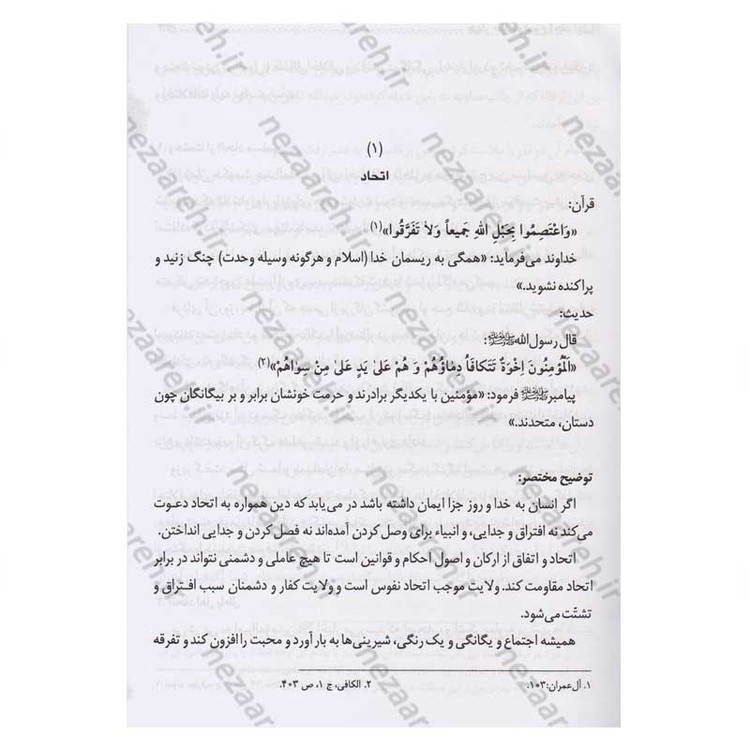 (۱)
اتحاد
قرآن:
«وَاعْتَصِمُوا بِحَبْلِ اللهِ جَمیعاً وَلاٰ تَفَرَّقُوا»(۱)
خداوند می‌فرماید: «همگی به ریسمان خدا (اسلام و هرگونه وسیله وحدت) چنگ زنید و
پراکنده نشوید.»
حدیث:
قال رسول اللهﷺ:
«اَلْمُؤمِنُونَ اِخْوَةٌ تَتَکافَاُ دِماؤُهُمْ وَ هُمْ عَلیٰ یَدٍ عَلیٰ مِنْ سِواهُمْ»(۲)
پیامبرﷺ فرمود: «مؤمنین با یکدیگر برادرند و حرمت خونشان برابر و بر بیگانگان چون
دستان، متحدند.»
توضیح مختصر:
اگر انسان به خدا و روز جزا ایمان داشته باشد در می‌یابد که دین همواره به اتحاد دعوت
می‌کند نه افتراق و جدایی، و انبیاء برای وصل کردن آمده‌اند نه فصل کردن و جدایی انداختن.
اتحاد و اتفاق از ارکان و اصول احکام و قوانین است تا هیچ عاملی و دشمنی نتواند در برابر
اتحاد مقاومت کند. ولایت موجب اتحاد نفوس است و ولایت کفار و دشمنان سبب افتراق و
تشتّت می‌شود.
همیشه اجتماع و یگانگی و یک رنگی، شیرینی‌ها به بار آورد و محبت را افزون کند و تفرقه
۱. آل‌عمران: ۱۰۳. ۲. الکافی، ج ۱، ص ۴۰۳.
nezaareh.ir